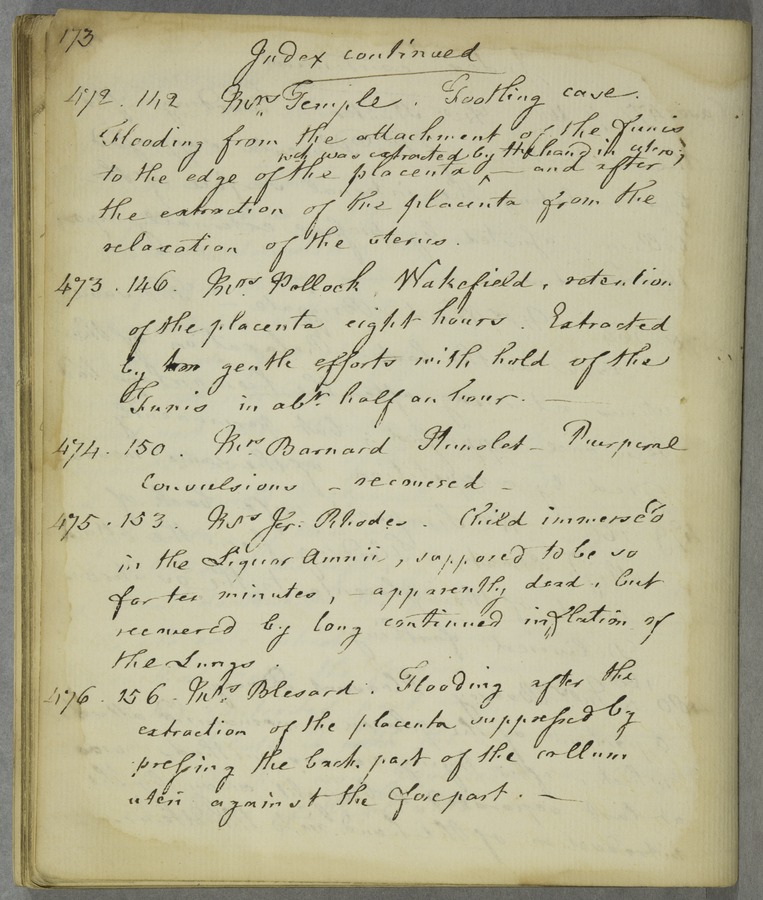 173
Index continued
472. 142 Mrs Temple. Footling case.
Flooding from the attachment of the funis
wch was extracted by the hand in utero;
to the edge of the placenta ^ — and after
the extraction of the placenta from the
relaxation of the uterus.
473. 146. Mrs Pollock, Wakefield, retention
of the placenta eight hours. Extracted
by gentle efforts with hold of the
Funis in abt half an hour. —
474. 150. Mrs Barnard Hunslet - Puerperal
Convulsions - recovered -
475. 153. Mrs Jer: Rhodes. Child immersed
in the Liquor Amnii, supposed to be so
for ten minutes, - apparently dead, but
recovered by long continued inflation of
the Lungs.
476. 156. Mrs Blesard. Flooding after the
extraction of the placenta suppressed by
pressing the back part of the collum
uteri against the forepart. —